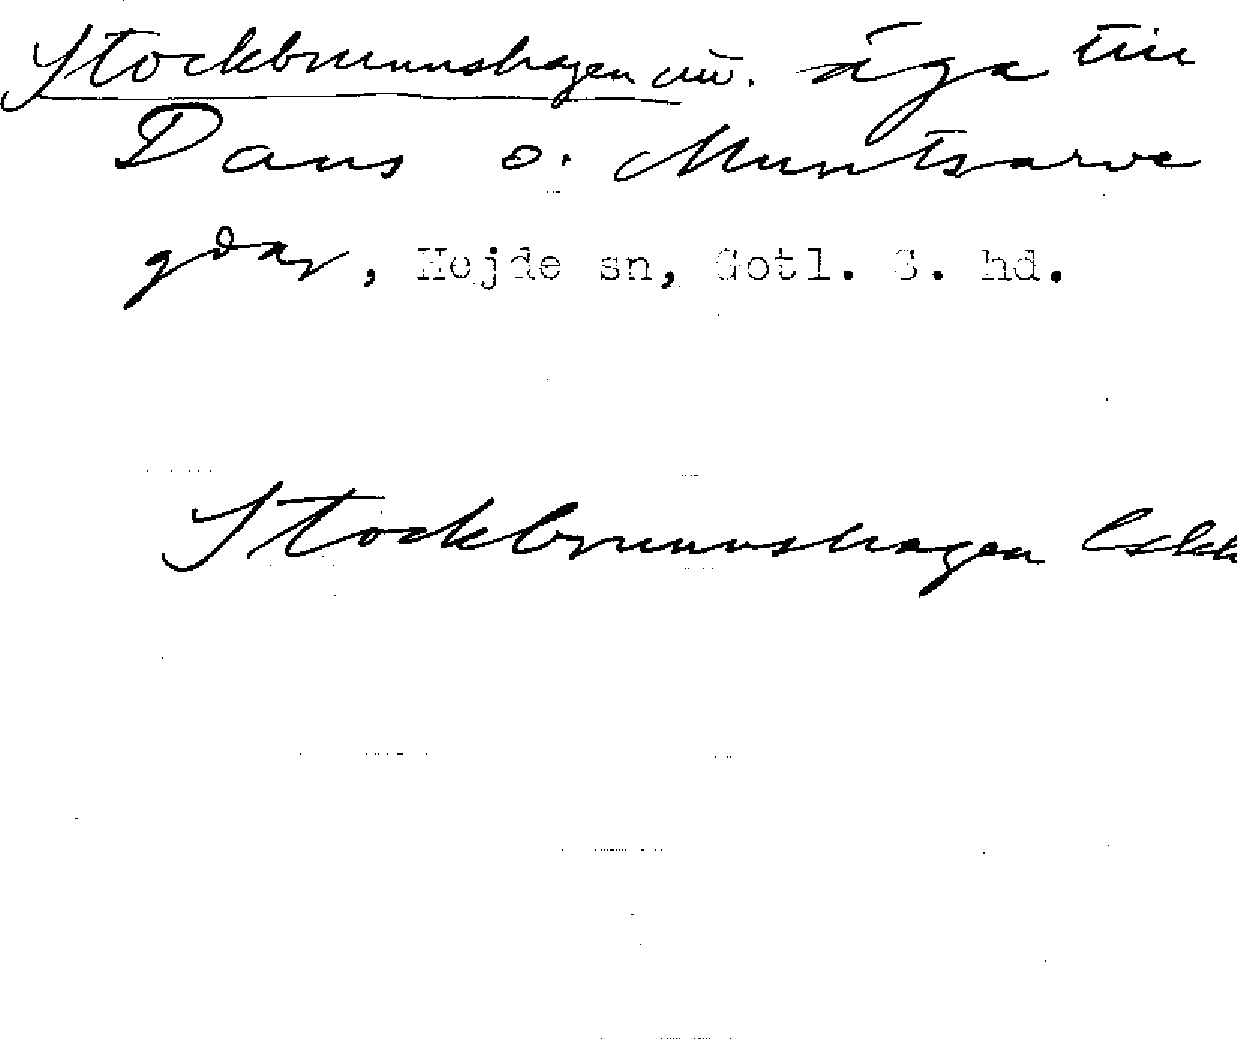 Stockbrunnshagen nu. äga till
Dans o. Muntsarve
gdar, Hejde sn, Gotl. S. hd.
Stockbrunnshagen